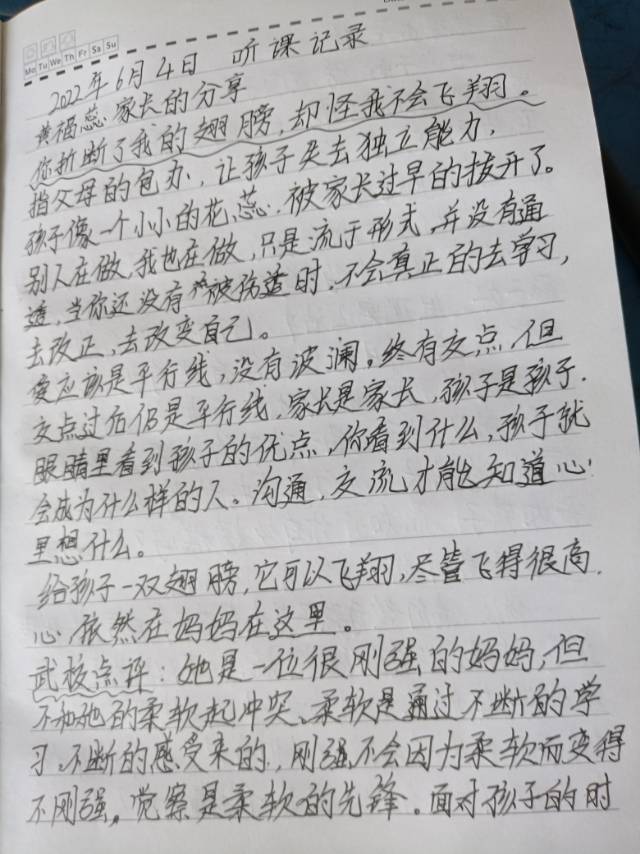 Mo Tu We Th Fr Sa Su
2022年6月4日 听课记录
黄杨蕊家长的分享
你折断了我的翅膀,却怪我不会飞翔。
指父母的包办,让孩子失去独立能力,
孩子像一个小小的花蕊,被家长过早的拔开了。
别人在做,我也在做,只是流于形式,并没有通
透,当你还没有被伤透时,不会真正的去学习,
去改正,去改变自己。
爱应该是平行线,没有波澜。终有交点,但
交点过后仍是平行线,家长是家长,孩子是孩子.
眼睛里看到孩子的优点,你看到什么,孩子就
会成为什么样的人。沟通,交流才能知道心
里想什么。
给孩子一双翅膀,它可以飞翔,尽管飞得很高.
心依然在妈妈在这里。
武校点评:她是一位很刚强的妈妈,但
不和她的柔软起冲突、柔软是通过不断的学
习、不断的感受来的,刚强不会因为柔软而变得
不刚强。觉察是柔软的先锋。面对孩子的时